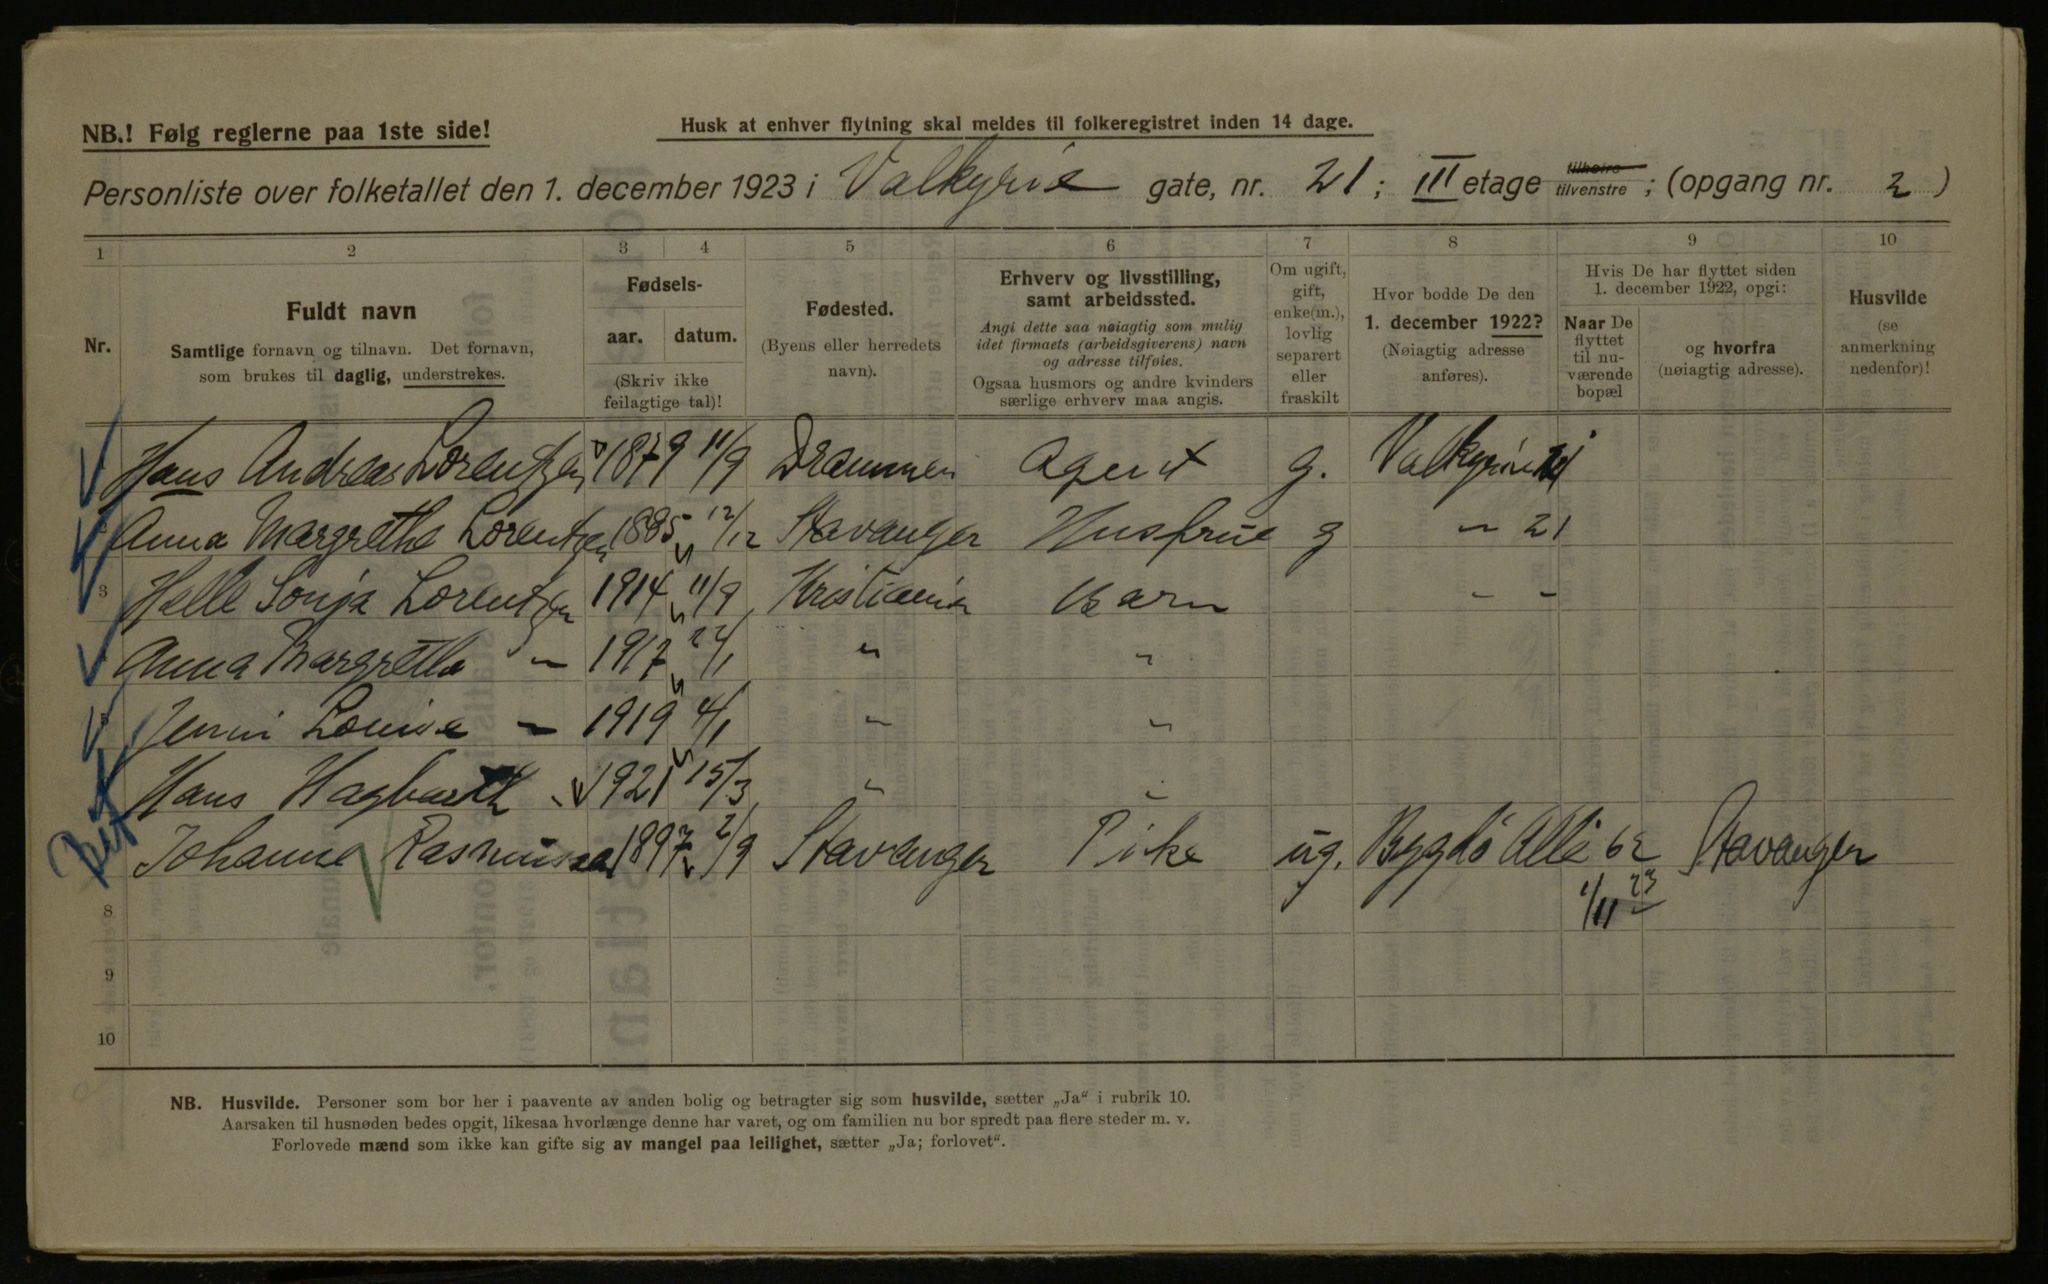 NB.! Følg reglerne paa 1ste side!
Husk at enhver flytning skal meldes til folkeregistret inden 14 dage.
Personliste over folketallet den 1. december 1923 i Valkyrie gate, nr. 21; III etage tilhøire tilvenstre; (opgang nr. 2)
1 2 3 4 5 6 7 8 9 10
Nr.
Fuldt navn
Samtlige fornavn og tilnavn. Det fornavn,
som brukes til daglig, understrekes.
Fødsels-
aar. datum.
(Skriv ikke
feilagtige tal)!
Fødested.
(Byens eller herredets
navn).
Erhverv og livsstilling,
samt arbeidssted.
Angi dette saa nøiagtig som mulig
idet firmaets (arbeidsgiverens) navn
og adresse tilføies.
Ogsaa husmors og andre kvinders
særlige erhverv maa angis.
Om ugift,
gift,
enke(m.),
lovlig
separert
eller
fraskilt
Hvor bodde De den
1. december 1922?
(Nøiagtig adresse
anføres).
Hvis De har flyttet siden
1. december 1922, opgi:
Naar De
flyttet
til nu-
værende
bopæl
og hvorfra
(nøiagtig adresse).
Husvilde
(se
anmerkning
nedenfor)!
Hans Andreas Lorentzen 1879 11/9 Drammen Agent g. Valkyrie 21
Anna Margrethe Lorentzen 1885 12/12 Stavanger Husfrue g " 21
3 Helle Sonja Lorentzen 1914 11/9 Kristiania Barn " "
Anna Margrethe " 1917 22/1 " "
Jenni Louise " 1919 4/1 " "
Hans Hagbarth " 1921 15/3 " "
Johanne Rasmussen 1897 2/9 Stavanger Pike ug. Bygdö Alle 62 Stavanger
1/11 23
8
9
10
NB. Husvilde. Personer som bor her i paavente av anden bolig og betragter sig som husvilde, sætter „Ja“ i rubrik 10.
Aarsaken til husnøden bedes opgit, likesaa hvorlænge denne har varet, og om familien nu bor spredt paa flere steder m. v.
Forlovede mænd som ikke kan gifte sig av mangel paa leilighet, sætter „Ja; forlovet“.